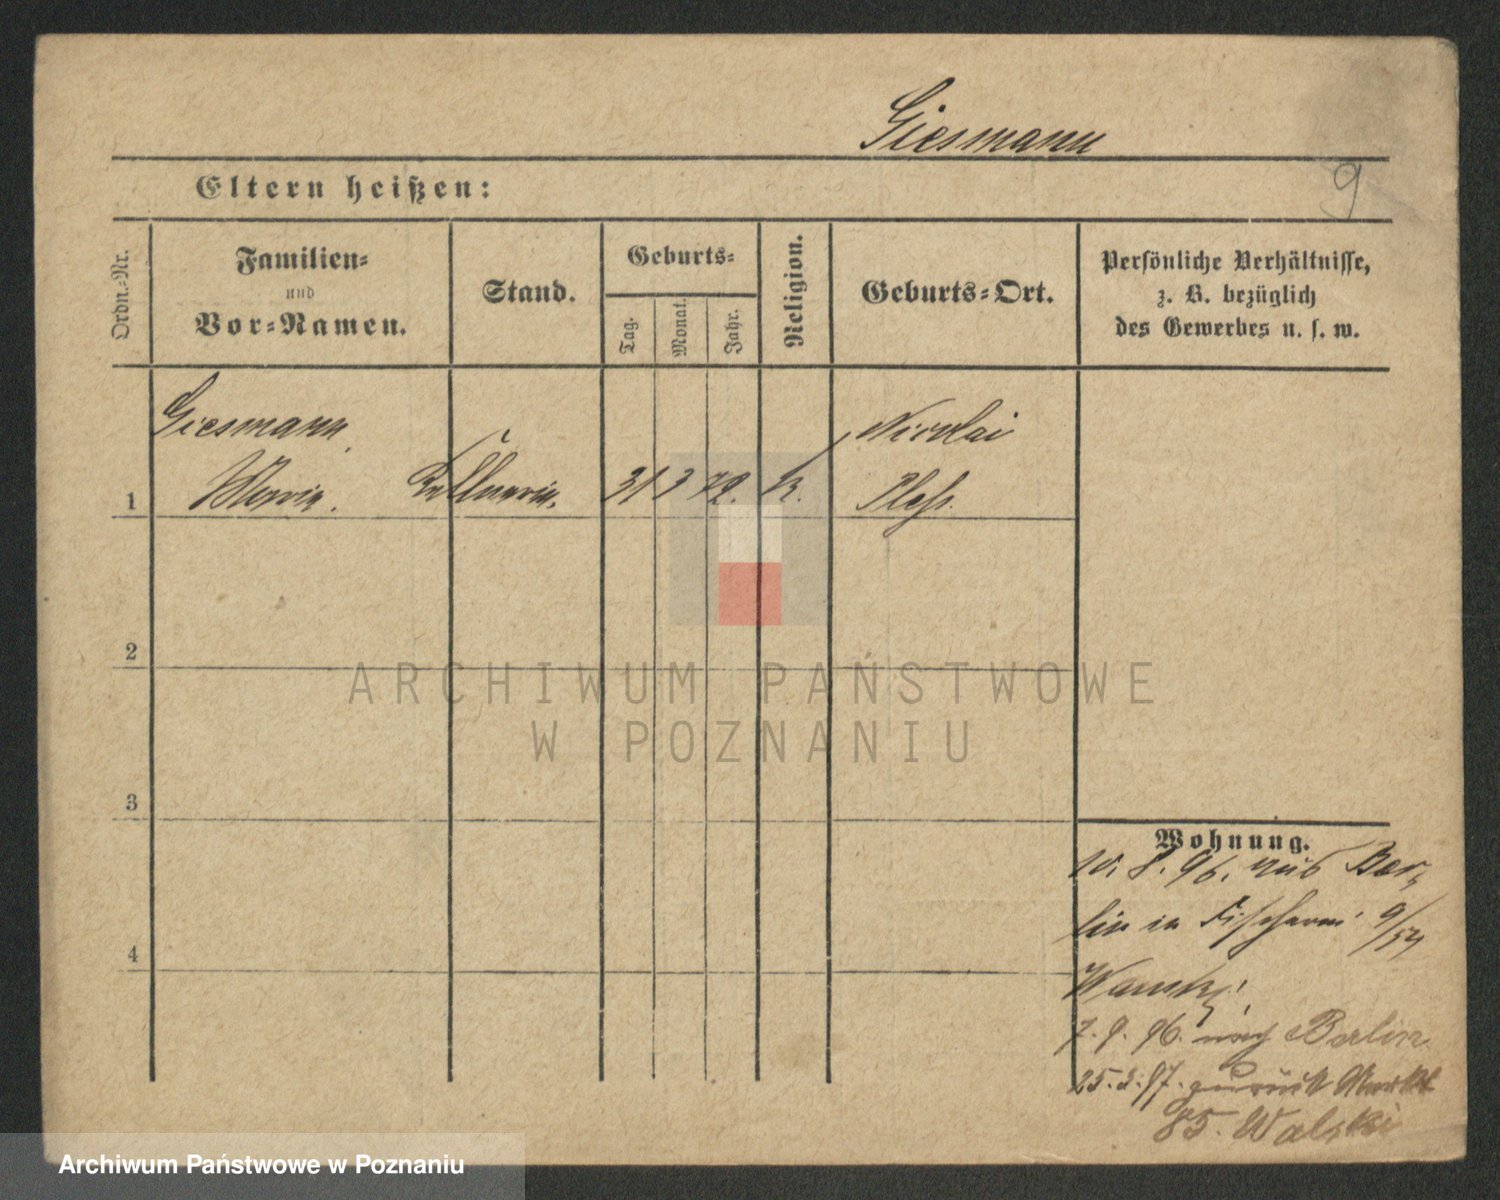 Giesmann
9
Eltern heißen:
Ordn.-Nr.
Familien-
und
Vor-Namen.
Stand.
Geburts-
Tag.
Monat.
Jahr.
Religion.
Geburts-Ort.
Persönliche Verhältnisse,
z. B. bezüglich
des Gewerbes u. s. w.
Giesmann
Nicolai
1 Marie. Kellnerin. 31 3 72. K. Pleß.
2
3
4
ARCHIWUM PAŃSTWOWE
W POZNANIU
Wohnung.
10. 8. 96. aus Ber-
lin in Fischerei 9/
7. 9. 96. nach Berlin
25. 3. 97. zurück Markt
85. Walski
Archiwum Państwowe w Poznaniu